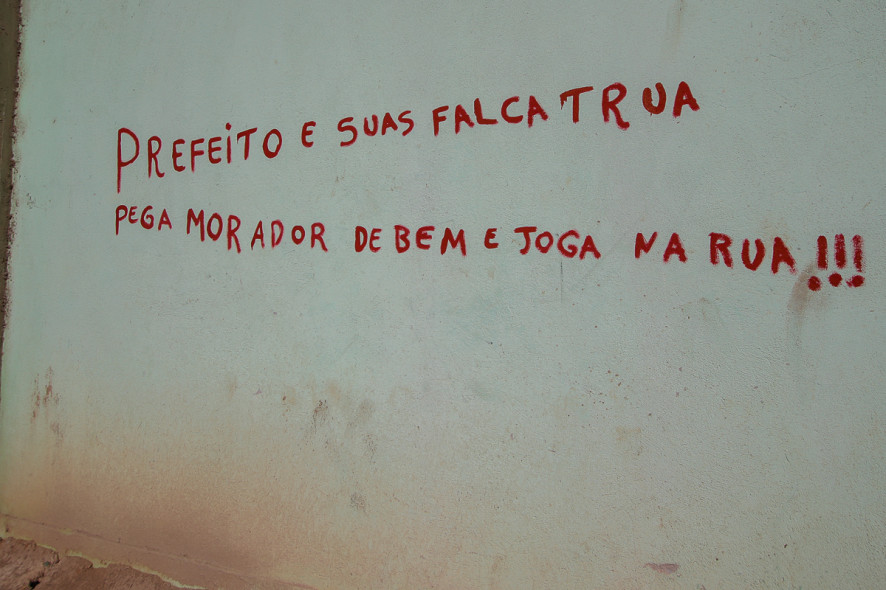 PREFEITO E SUAS FALCATRUA
PEGA MORADOR DE BEM E JOGA NA RUA!!!